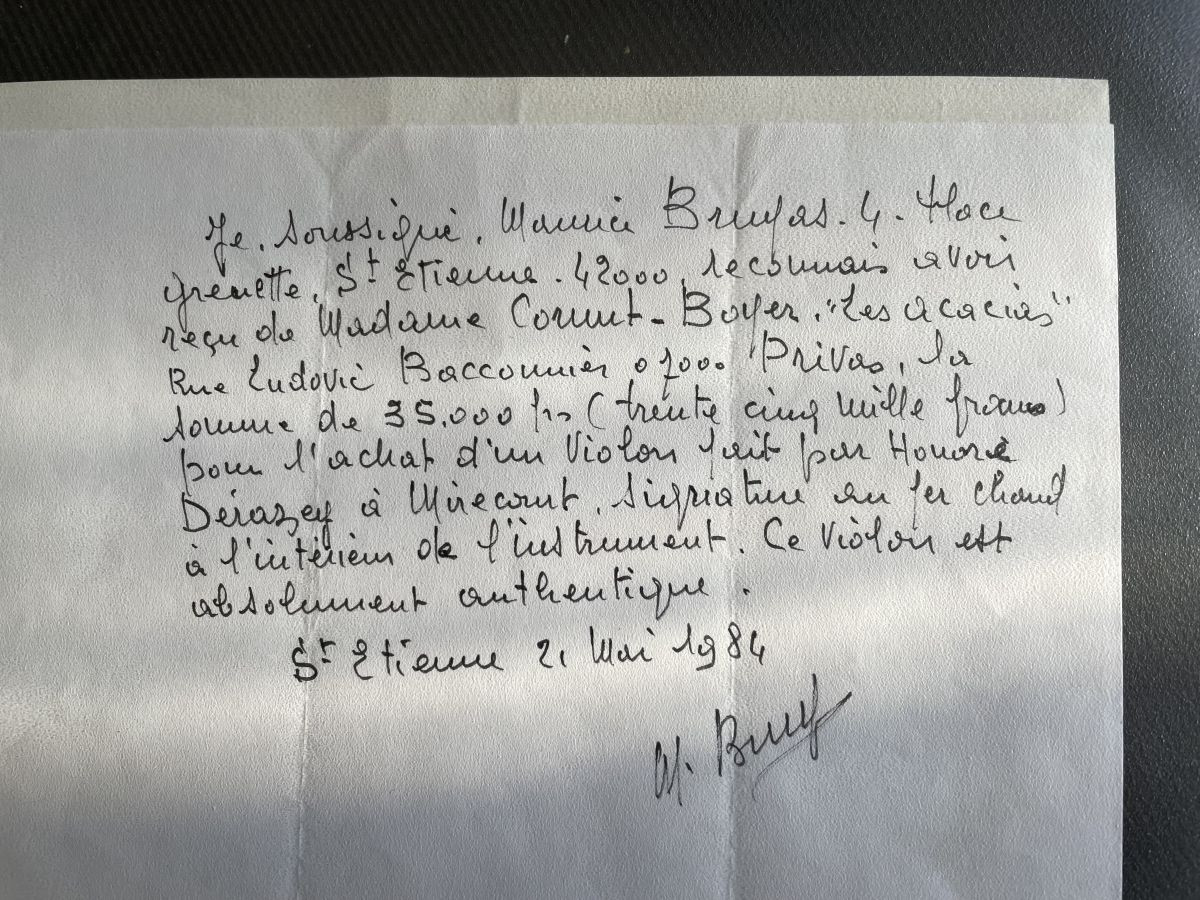 Je, Soussigné, Maurice Bruyas. 4. Place
Grenette, St Etienne. 42000, reconnais avoir
reçu de Madame Cornut-Boyer, "Les Acacias"
Rue Ludovic Baccounier 07000 Privas, la
somme de 35.000 frs (trente cinq mille francs)
pour l'achat d'un Violon fait par Honoré
Dérazey à Mirecourt, signature au fer chaud
à l'intérieur de l'instrument. Ce Violon est
absolument authentique.
St Etienne 2, Mai 1984
M. Bruy